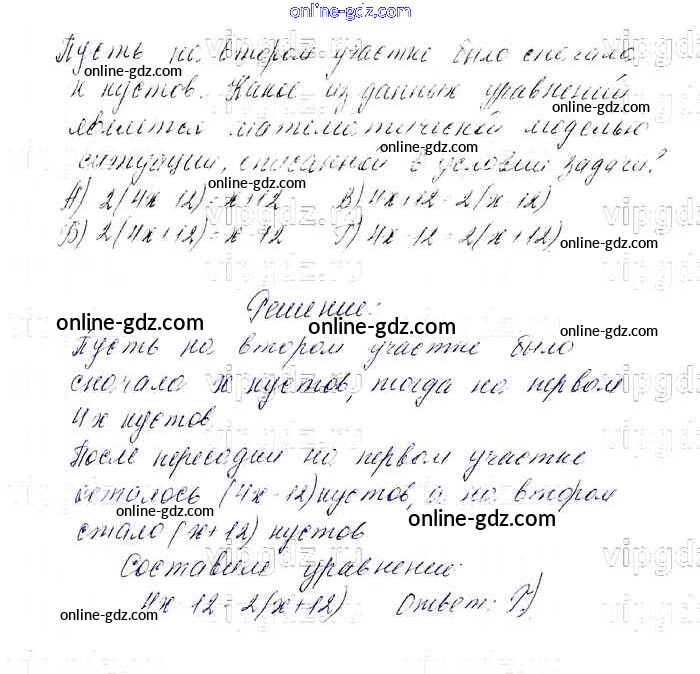 online-gdz.com
Пусть на втором участке было сначала
online-gdz.com
х кустов. Какое из данных уравнений
online-gdz.com
является математической моделью
online-gdz.com
ситуации, описанной в условии задачи?
online-gdz.com
А) 2(4х-12)=х+12 В) 4х+12=2(х-12)
Б) 2(4х+12)=х-12 Г) 4х-12=2(х+12)
online-gdz.com
Решение:
online-gdz.com online-gdz.com online-gdz.com
Пусть на втором участке было
сначала х кустов, тогда на первом
4х кустов.
После пересадки на первом участке
осталось (4х-12) кустов, а на втором
online-gdz.com online-gdz.com
стало (х+12) кустов
Составим уравнение:
4х-12=2(х+12) Ответ: Г)
online-gdz.com